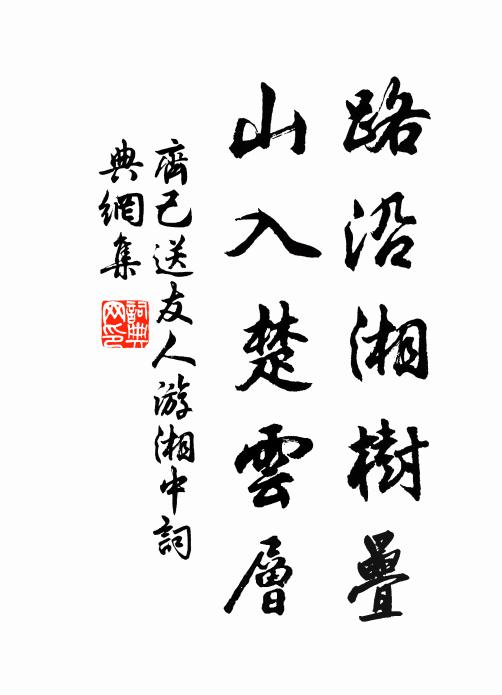 路沿湘樹疊
山入楚雲層
齊己送友人游湘中詞
典網集
詞典
网印